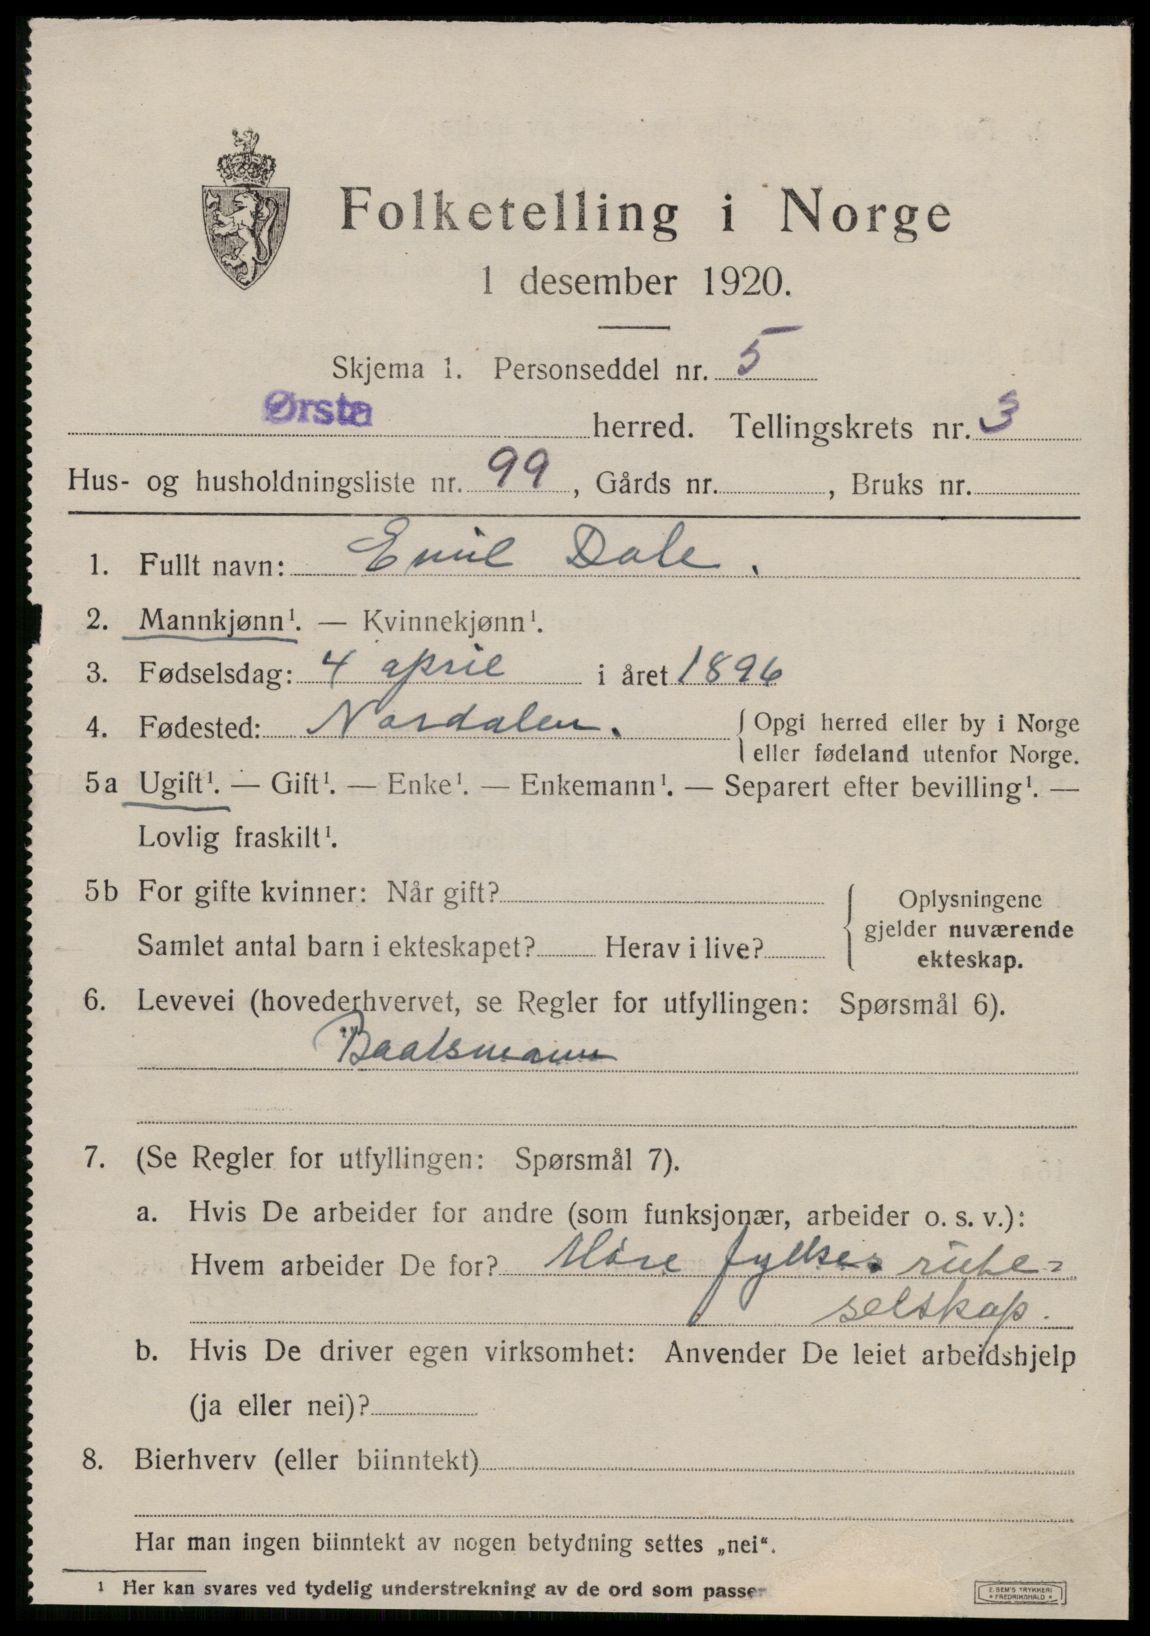 Folketelling i Norge
1 desember 1920.
Skjema 1. Personseddel nr. 5
Ørsta herred. Tellingskrets nr. 3
Hus- og husholdningsliste nr. 99, Gårds nr. , Bruks nr.
1. Fullt navn: Emil Dale.
2. Mannkjønn¹. — Kvinnekjønn¹.
3. Fødselsdag: 4 april i året 1896
4. Fødested: Nordalen. Opgi herred eller by i Norge
eller fødeland utenfor Norge.
5a Ugift¹. — Gift¹. — Enke¹. — Enkemann¹. — Separert efter bevilling¹. —
Lovlig fraskilt¹.
5b For gifte kvinner: Når gift?
Samlet antal barn i ekteskapet? Herav i live?
Oplysningene
gjelder nuværende
ekteskap.
6. Levevei (hovederhvervet, se Regler for utfyllingen: Spørsmål 6).
Baatsmann
7. (Se Regler for utfyllingen: Spørsmål 7).
a. Hvis De arbeider for andre (som funksjonær, arbeider o. s. v.):
Hvem arbeider De for? Møre fylkes rute=
selskap.
b. Hvis De driver egen virksomhet: Anvender De leiet arbeidshjelp
(ja eller nei)?
8. Bierhverv (eller biinntekt)
Har man ingen biinntekt av nogen betydning settes „nei“.
¹ Her kan svares ved tydelig understrekning av de ord som passer
E. SEM'S TRYKKERI
* FREDRIKSHALD *